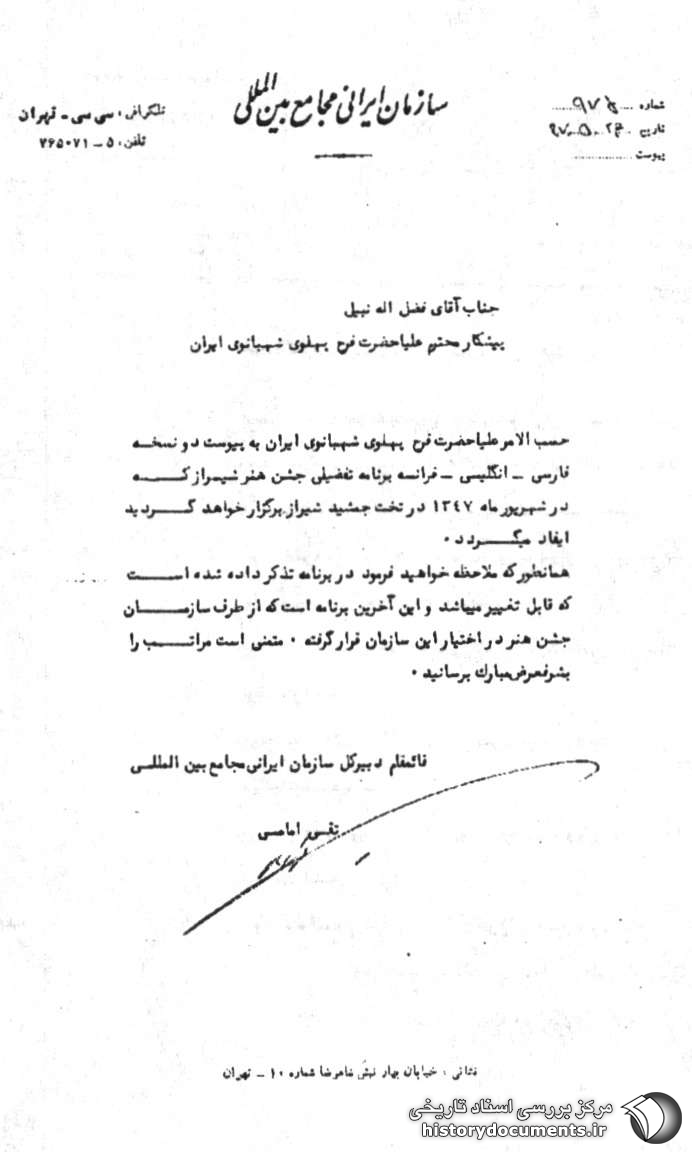 سازمان ایرانی مجامع بین المللی
شماره
تاریخ ۴۷.۵.۲۳
پیوست
تلگرافی : سی سی - تهران
تلفن : ۵ - ۷۶۵۰۷۱
جناب آقای فضل اله نبیل
پیشکار محترم علیاحضرت فرح پهلوی شهبانوی ایران
حسب الامر علیاحضرت فرح پهلوی شهبانوی ایران به پیوست دو نسخه
فارسی - انگلیسی - فرانسه برنامه تفضیلی جشن هنر شیراز که
در شهریور ماه ۱۳۴۷ در تخت جمشید شیراز برگزار خواهد گردید
ایفاد میگردد .
همانطور که ملاحظه خواهید فرمود در برنامه تذکر داده شده است
که قابل تغییر میباشد و این آخرین برنامه است که از طرف سازمان
جشن هنر در اختیار این سازمان قرار گرفته . متمنی است مراتب را
بشرفعرض مبارک برسانید .
قائمقام دبیرکل سازمان ایرانی مجامع بین المللی
تقی امامی
نشانی : خیابان بهار نبش شاهرضا شماره ۱۰ - تهران
مرکز بررسی اسناد تاریخی
historydocuments.ir